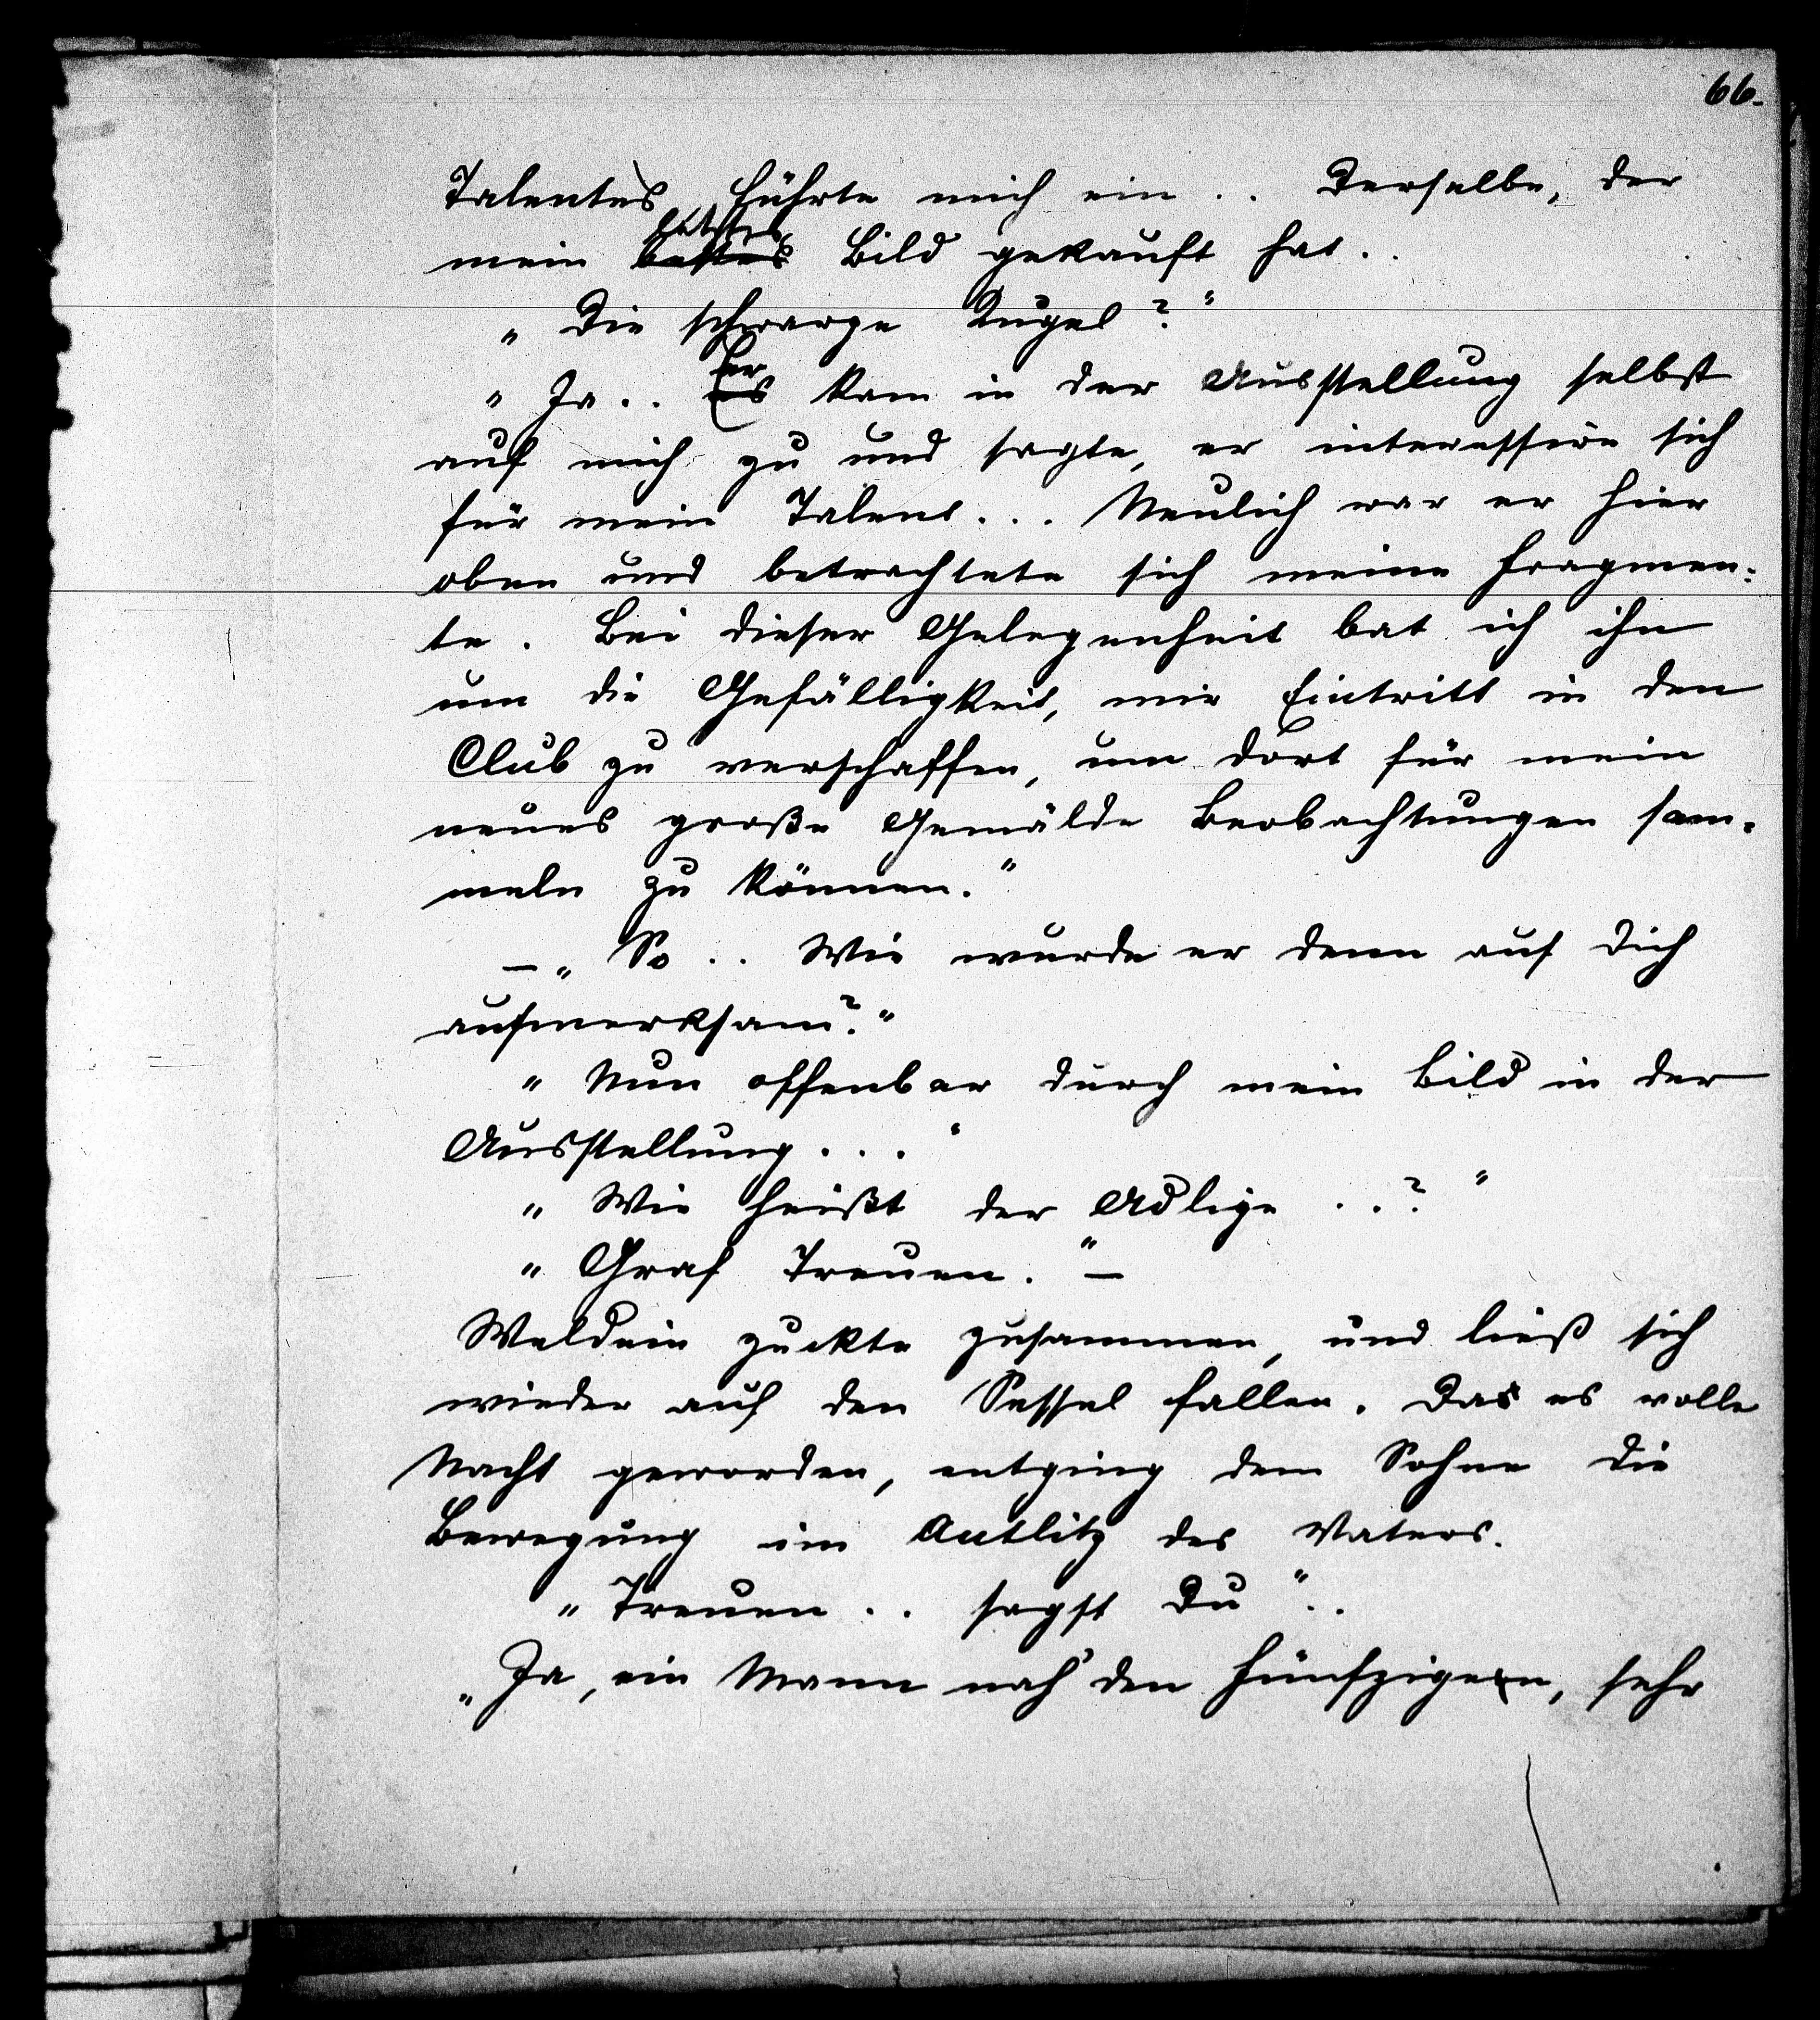 66.
Talentes führte mich ein .. Derselbe, der
mein letztes bestes Bild gekauft hat..
„Die schwarze Kugel?"
„Ja.. Er es kam in der Ausstellung selbst
auf mich zu und sagte, er interessire sich
für mein Talent... Neulich war er hier
oben und betrachtete sich meine Fragmen=
te. Bei dieser Gelegenheit bat ich ihn
um die Gefälligkeit, mir Eintritt in den
Club zu verschaffen, um dort für mein
neues große Gemälde Beobachtungen sam=
meln zu können."
– „So .. Wie wurde er denn auf Dich
aufmerksam?"
„Nun offenbar durch mein Bild in der
Ausstellung..."
„Wie heißt der Adlige ..?"
„Graf Treuen." –
Weldein zuckte zusammen, und ließ sich
wieder auf den Sessel fallen. Das es volle
Nacht geworden, entging dem Sohne die
Bewegung im Antlitz des Vaters.
„Treuen .. sagst Du"..
„Ja, ein Mann nah' den Fünfzigern, sehr